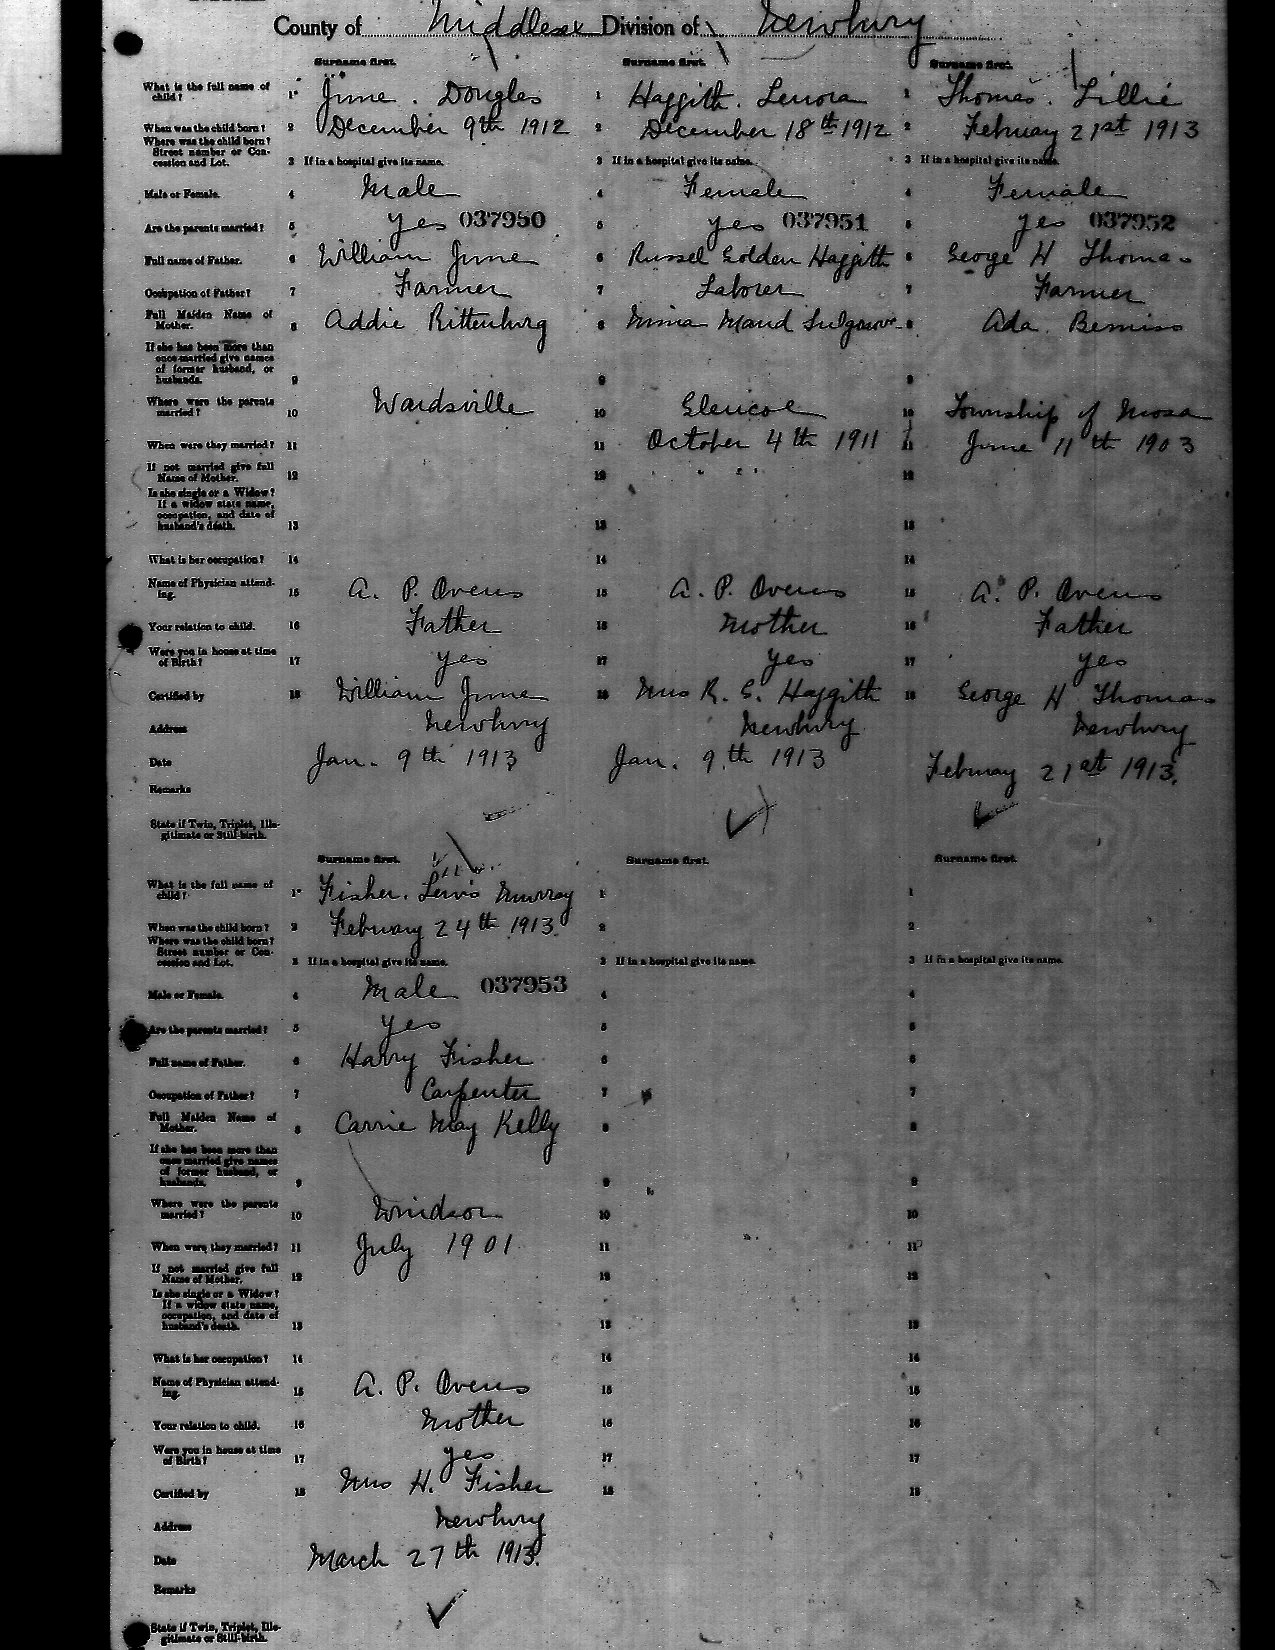 County of Middlesex Division of Newbury
Surname first. Surname first. Surname first.
What is the full name of child? 1 June. Douglas 1 Haggith. Lenora 1 Thomas. Lillie
When was the child born? 2 December 9th 1912 2 December 18th 1912 2 February 21st 1913
Where was the child born?
Street number or Con-
cession and Lot. 3 If in a hospital give its name. 3 If in a hospital give its name. 3 If in a hospital give its name.
Male or Female. 4 Male 4 Female 4 Female
Are the parents married? 5 yes 037950 5 yes 037951 5 yes 037952
Full name of Father. 6 William June 6 Russel Golden Haggith 6 George H Thomas
Occupation of Father? 7 Farmer 7 Laborer 7 Farmer
Full Maiden Name of
Mother. 8 Addie Rittenburg 8 Maud 8 Ada Bemiss
If she has been more than
once married give names
of former husband, or
husbands. 9 9 9
Where were the parents
married? 10 Wardsville 10 Glencoe 10 Township of Mosa
When were they married? 11 11 October 4th 1911 11 June 11th 1903
If not married give full
Name of Mother. 12 12 12
Is she single or a Widow?
If a widow state name,
occupation, and date of
husband's death. 13 13 13
What is her occupation? 14 14 14
Name of Physician attend-
ing. 15 A. P. Owens 15 A. P. Owens 15 A. P. Owens
Your relation to child. 16 Father 16 Mother 16 Father
Were you in house at time
of Birth? 17 yes 17 yes 17 yes
Certified by 18 William June 18 Mrs R. G. Haggith 18 George H Thomas
Address Newbury Newbury Newbury
Date Jan. 9th 1913 Jan. 9th 1913 February 21st 1913.
Remarks
State if Twin, Triplet, Ille-
gitimate or Still-birth.
Surname first. Surname first. Surname first.
What is the full name of
child? 1 Fisher. Lewis Murray 1 1
When was the child born? 2 February 24th 1913. 2 2
Where was the child born?
Street number or Con-
cession and Lot. 3 If in a hospital give its name. 3 If in a hospital give its name. 3 If in a hospital give its name.
Male or Female. 4 Male 037953 4 4
Are the parents married? 5 yes 5 5
Full name of Father. 6 Harry Fisher 6 6
Occupation of Father? 7 Carpenter 7 7
Full Maiden Name of
Mother. 8 Carrie May Kelly 8 8
If she has been more than
once married give names
of former husband, or
husbands. 9 9 9
Where were the parents
married? 10 Windsor 10 10
When were they married? 11 July 1901 11 11
If not married give full
Name of Mother. 12 12 12
Is she single or a Widow?
If a widow state name,
occupation, and date of
husband's death. 13 13 13
What is her occupation? 14 14 14
Name of Physician attend-
ing. 15 A. P. Owens 15 15
Your relation to child. 16 Mother 16 16
Were you in house at time
of Birth? 17 yes 17 17
Certified by 18 Mrs H. Fisher 18 18
Address Newbury
Date March 27th 1913.
Remarks
State if Twin, Triplet, Ille-
gitimate or Still-birth.